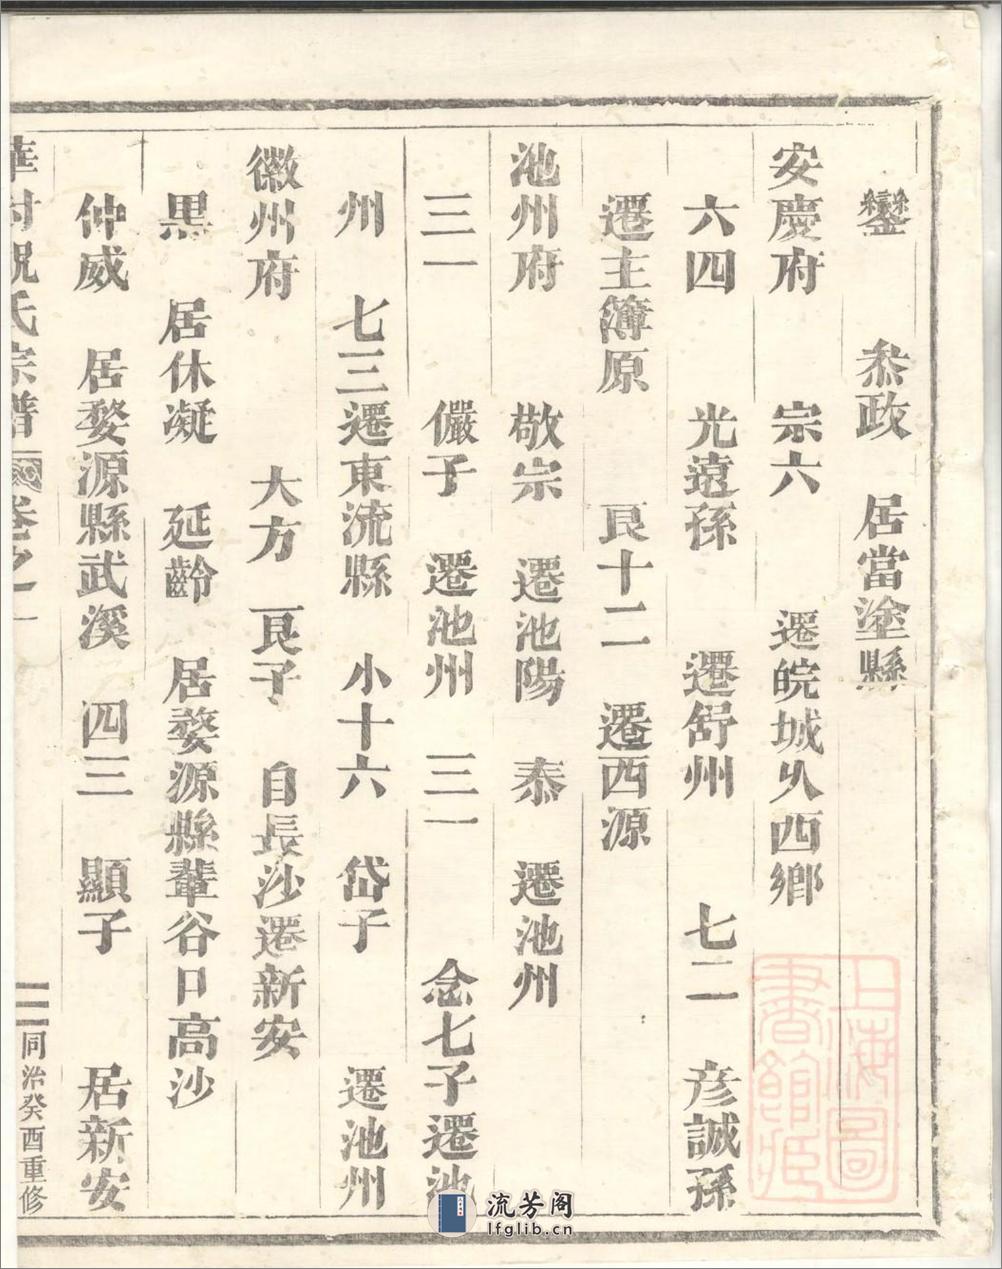 鑾 叅政 居當塗縣
安慶府 宗六 遷皖城久西鄉
六四 光遠孫 遷舒州 七二 彦誠孫
遷主簿原 艮十二 遷西源
池州府 敬宗 遷池陽 泰 遷池州
三一 儼子 遷池州 三一 念七子遷池
州 七三遷東流縣 小十六 岱子 遷池州
徽州府 大方 艮子 自長沙遷新安
黒 居休凝 延齡 居婺源縣輋谷口高沙
仲威 居婺源縣武溪 四三 顯子 居新安
華村祝氏宗譜 卷之一 二 同治癸酉重修
上海圖書館藏
流芳阁
lfglib.cn